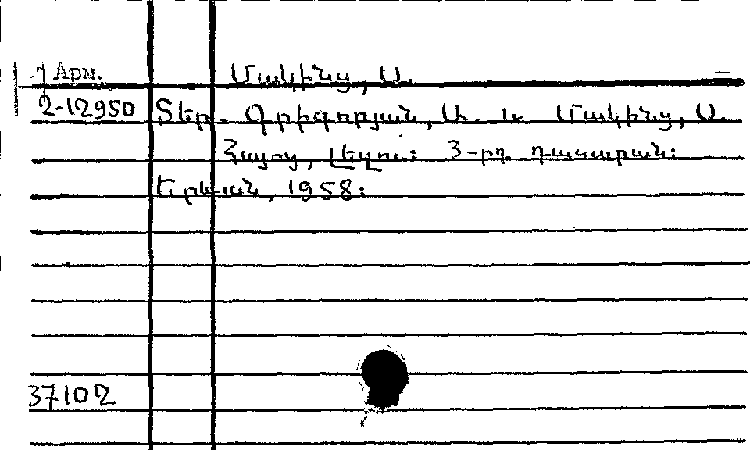 Арм. Մակինց, Ա.
2-12950 Տեր-Գրիգորյան, Ա. և Մակինց, Ա.
Հայոց լեզու: 3-րդ դասարան:
Երևան, 1958:
37102